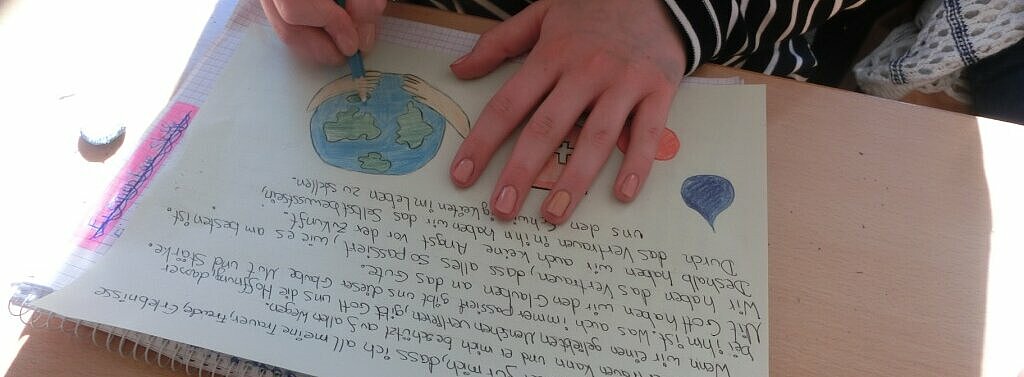 für mich, dass ich all meine Trauer, Freude, Erlebnisse
kann und er mich beschützt auf allen Wegen.
Wenn wir einen geliebten Menschen verlieren gibt Gott uns die Hoffnung, dass er
bei ihm ist. Was auch immer passiert gibt uns dieser Glaube Mut und Stärke.
Mit Gott haben wir den Glauben an das Gute.
Wir haben das Vertrauen, dass alles so passiert, wie es am besten ist.
Deshalb haben wir auch keine Angst vor der Zukunft.
Durch das Vertrauen in ihn haben wir das Selbstbewusstsein,
uns den Schwierigkeiten im Leben zu stellen.